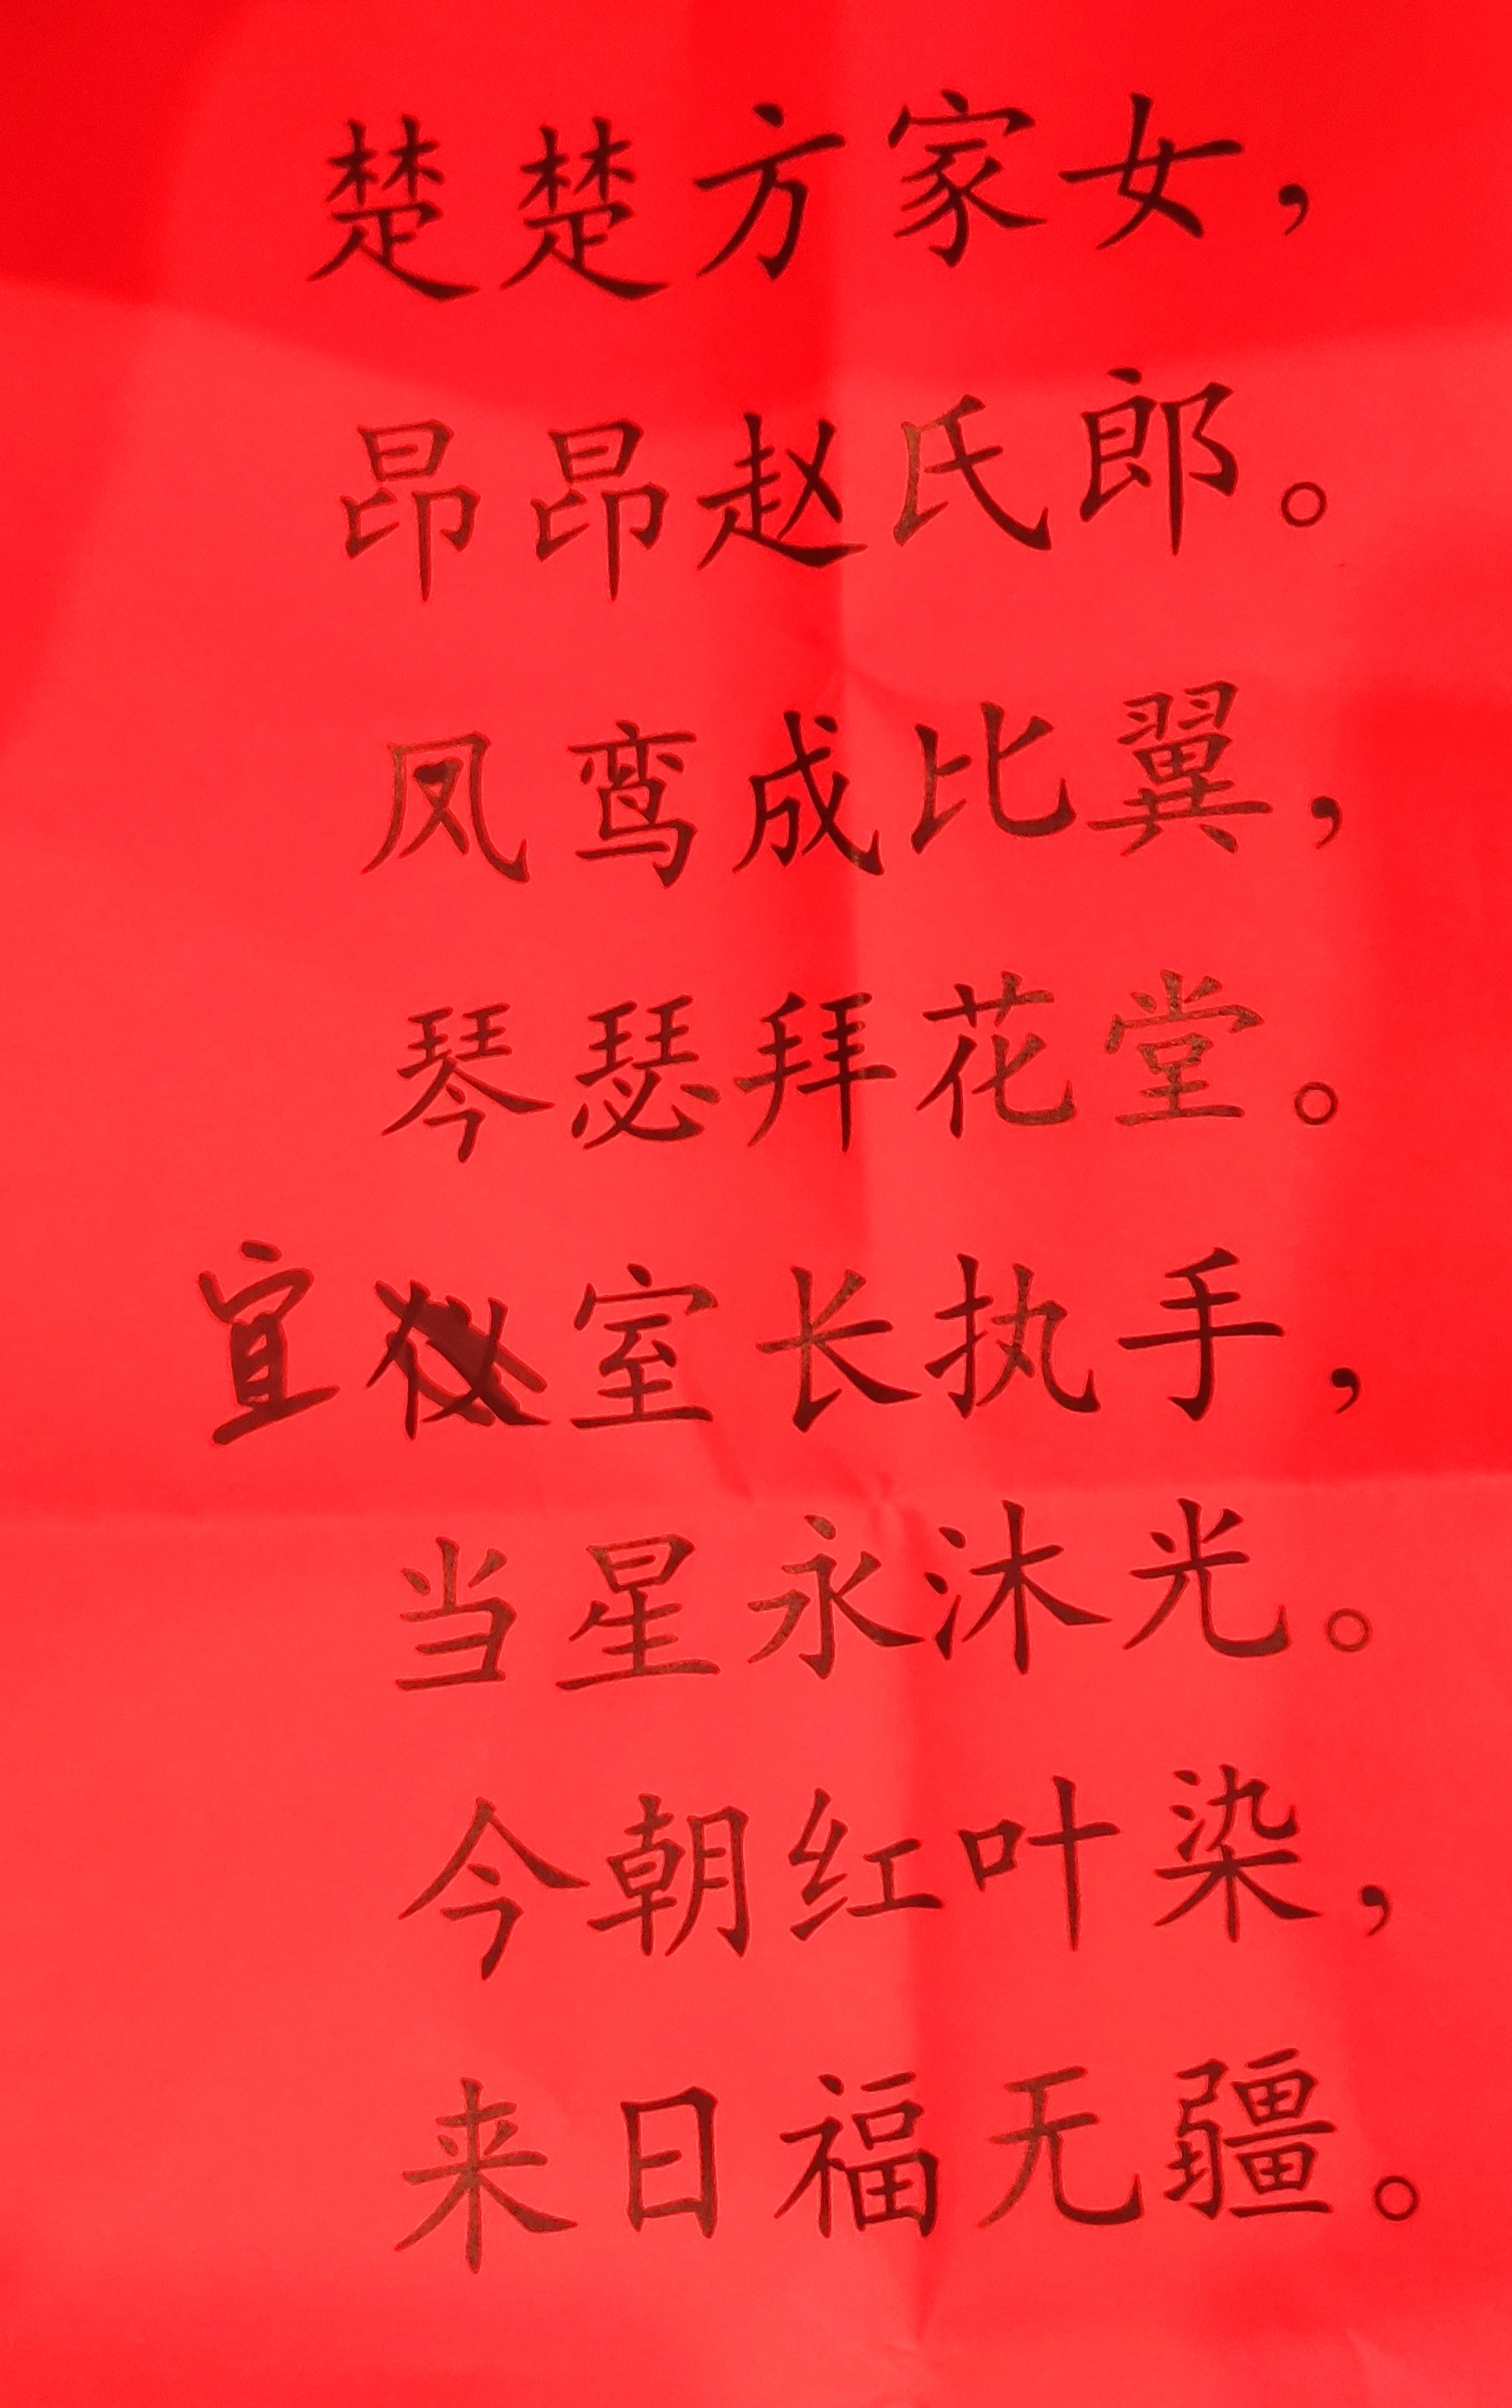 楚楚方家女，
昂昂赵氏郎。
凤鸾成比翼，
琴瑟拜花堂。
宜室长执手，
当星永沐光。
今朝红叶染，
来日福无疆。